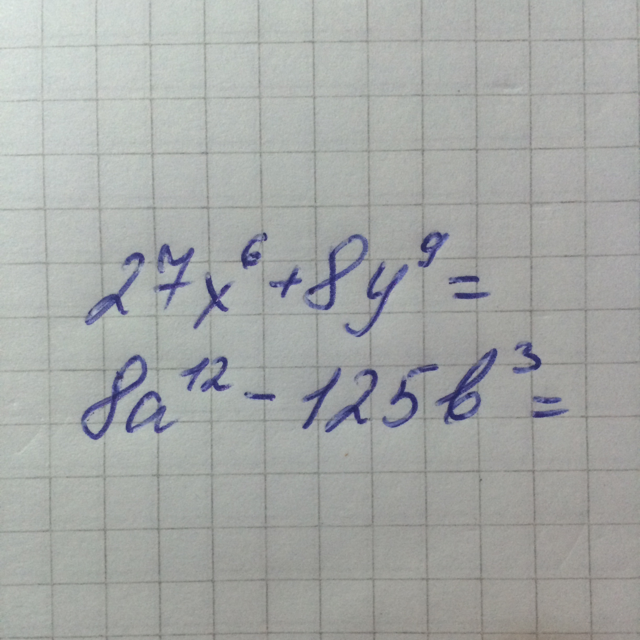 27x⁶+8y⁹=
8a¹²-125b³=